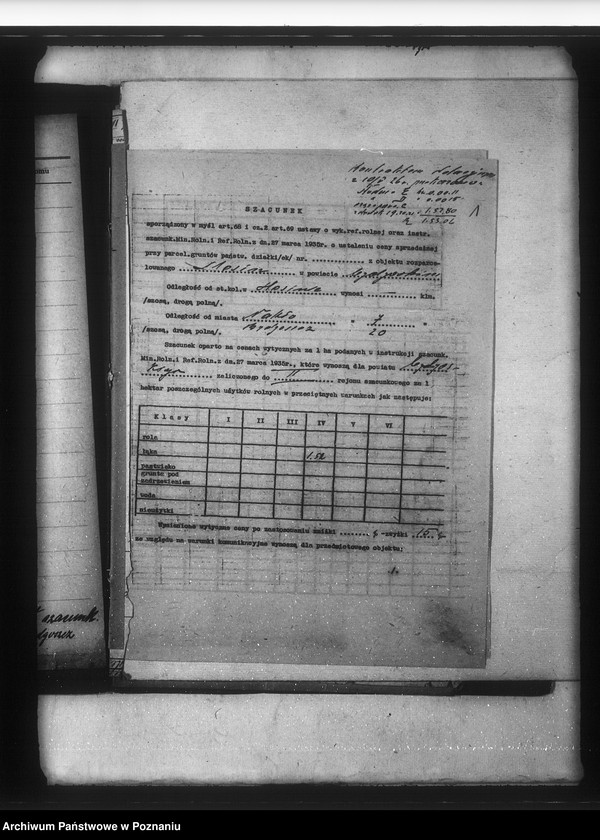 z 1919 26 r.
1.57,80
1.53.06
1
SZACUNEK
sporządzony w myśl art.68 i cz.2 art.69 ustawy o wyk.ref.rolnej oraz instr.
szacunk.Min.Roln.i Ref.Roln.z dn.27 marca 1935r. o ustaleniu ceny sprzedażnej
przy parcel.gruntów państw. działki/ek/ nr. ............ z objektu rozparce-
lowanego w powiecie
Odległość od st.kol.w wynosi ............ klm.
/szosą, drogą polną/.
Odległość od miasta Nakło " 7 "
/szosą, drogą polną/. Bydgoszcz 20
Szacunek oparto na cenach wytycznych za 1 ha podanych w instrukcji szacunk.
Min.Rolz.i Ref.Roln.z dn.27 marca 1935r., które wynoszą dla powiatu
zaliczonego do II rejonu szacunkowego za 1
hektar poszczególnych użytków rolnych w przeciętnych warunkach jak następuje:
Klasy I II III IV V VI
rola
łąka 1.52
pastwisko
grunta pod
zadrzewieniem
woda
nieużytki
Wymienione wytyczne ceny po zastosowaniu zniżki ........ % -zwyżki 15 %
ze względu na warunki komunikacyjne wynoszą dla przedmiotowego objektu:
.1.
szacunk.
Archiwum Państwowe w Poznaniu